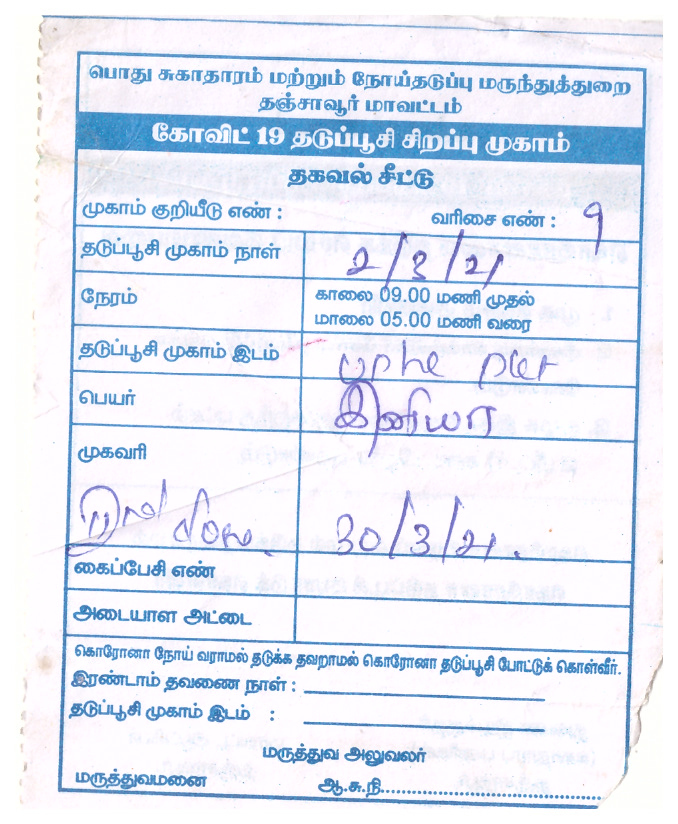 பொது சுகாதாரம் மற்றும் நோய்தடுப்பு மருந்துத்துறை
தஞ்சாவூர் மாவட்டம்
கோவிட் 19 தடுப்பூசி சிறப்பு முகாம்
தகவல் சீட்டு
முகாம் குறியீடு எண் : வரிசை எண் : 9
தடுப்பூசி முகாம் நாள் 2/3/21
நேரம் காலை 09.00 மணி முதல்
மாலை 05.00 மணி வரை
தடுப்பூசி முகாம் இடம்
பெயர் இனியா
முகவரி
dose. 30/3/21.
கைப்பேசி எண்
அடையாள அட்டை
கொரோனா நோய் வராமல் தடுக்க தவறாமல் கொரோனா தடுப்பூசி போட்டுக் கொள்வீர்.
இரண்டாம் தவணை நாள் :
தடுப்பூசி முகாம் இடம் :
மருத்துவ அலுவலர்
மருத்துவமனை ஆ.சு.நி.